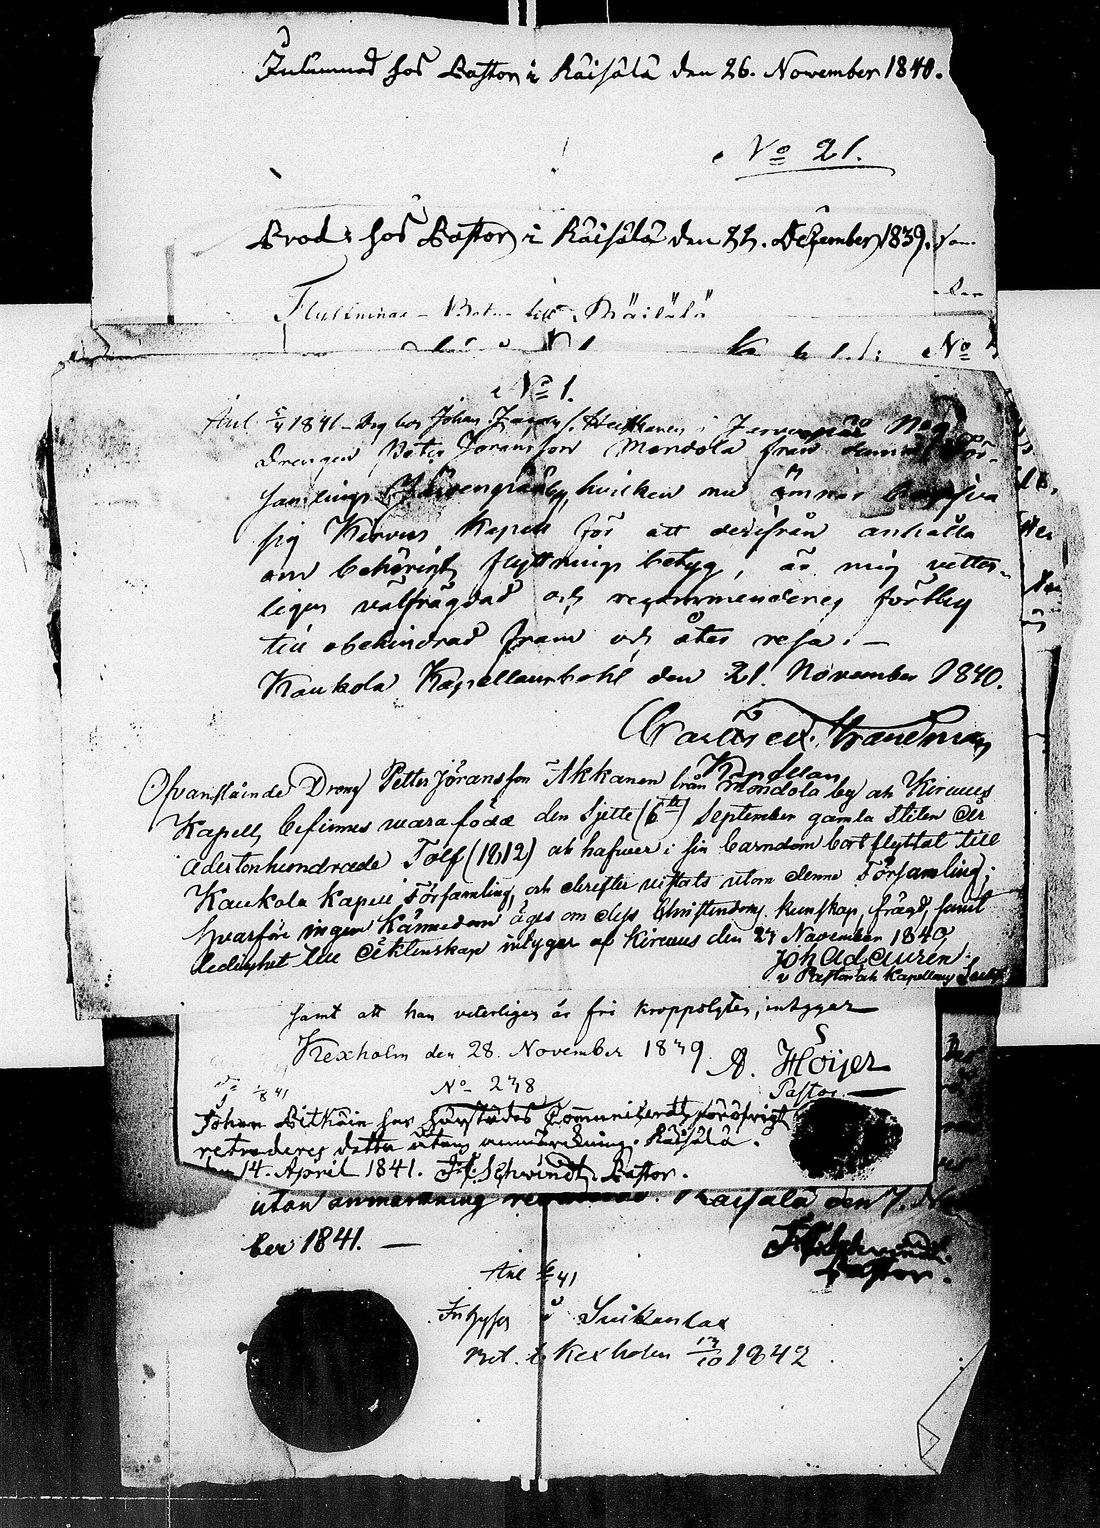 Inlemnad hos Pastor i Räisälä den 26. November 1840.
No 21.
Prod: hos Pastor i Räisälä den 22. December 1839.
Flyttnings-Betyg till Räisälä
No
No 1.
1841 hos Johan
Drengen Peter Joransson Mondola från
samlings hvilken nu ämnar begifva
sig Kirvus Kapell för att derifrån anhålla
om behörigt flyttnings betyg, är mig vetter-
ligen välfrägdad och recommenderes förthy
till obehindrad fram och åter resa. —
Kaukola Kapellansbohl den 21. November 1840.
Strandman
Kapellan
Ofvanstående Dreng Petter Jöransson Akkanen från Mondola by ah Kirwus
Kapell, befinnes wara född den Sjette (6te) September gamla Stilen år
Adertonhundrade Tolf (1812) ah hafwer i sin barndom bortflyttat till
Kaukola Kapell Församling, och derefter vistats utom denne Församling;
hvarföre ingen Kännedom äges om dess Christendoms kunskap, frägd, samt
ledighet till äktenskap intygar af Kirwus den 27 November 1840,
Joh. Ad. Auren
v. Pastor ah Kapellans
samt att han veterligen är fri kroppslyten, intygar
Kexholm den 28. November 1839. A. Höijer
Pastor. —
No 238
Johan Pitkäin har härstädes Communicerat, föröfrigt
retraderes detta utan anmärkning. Räisälä.
den 14. April 1841. Schvindt, Pastor.
utan anmärkning Räisälä den 7.
ber 1841. —
Schvindt.
Pastor.
Anl 41
Inhyses i Suikanlax
Bet. t. Kexholm 13/10 1842